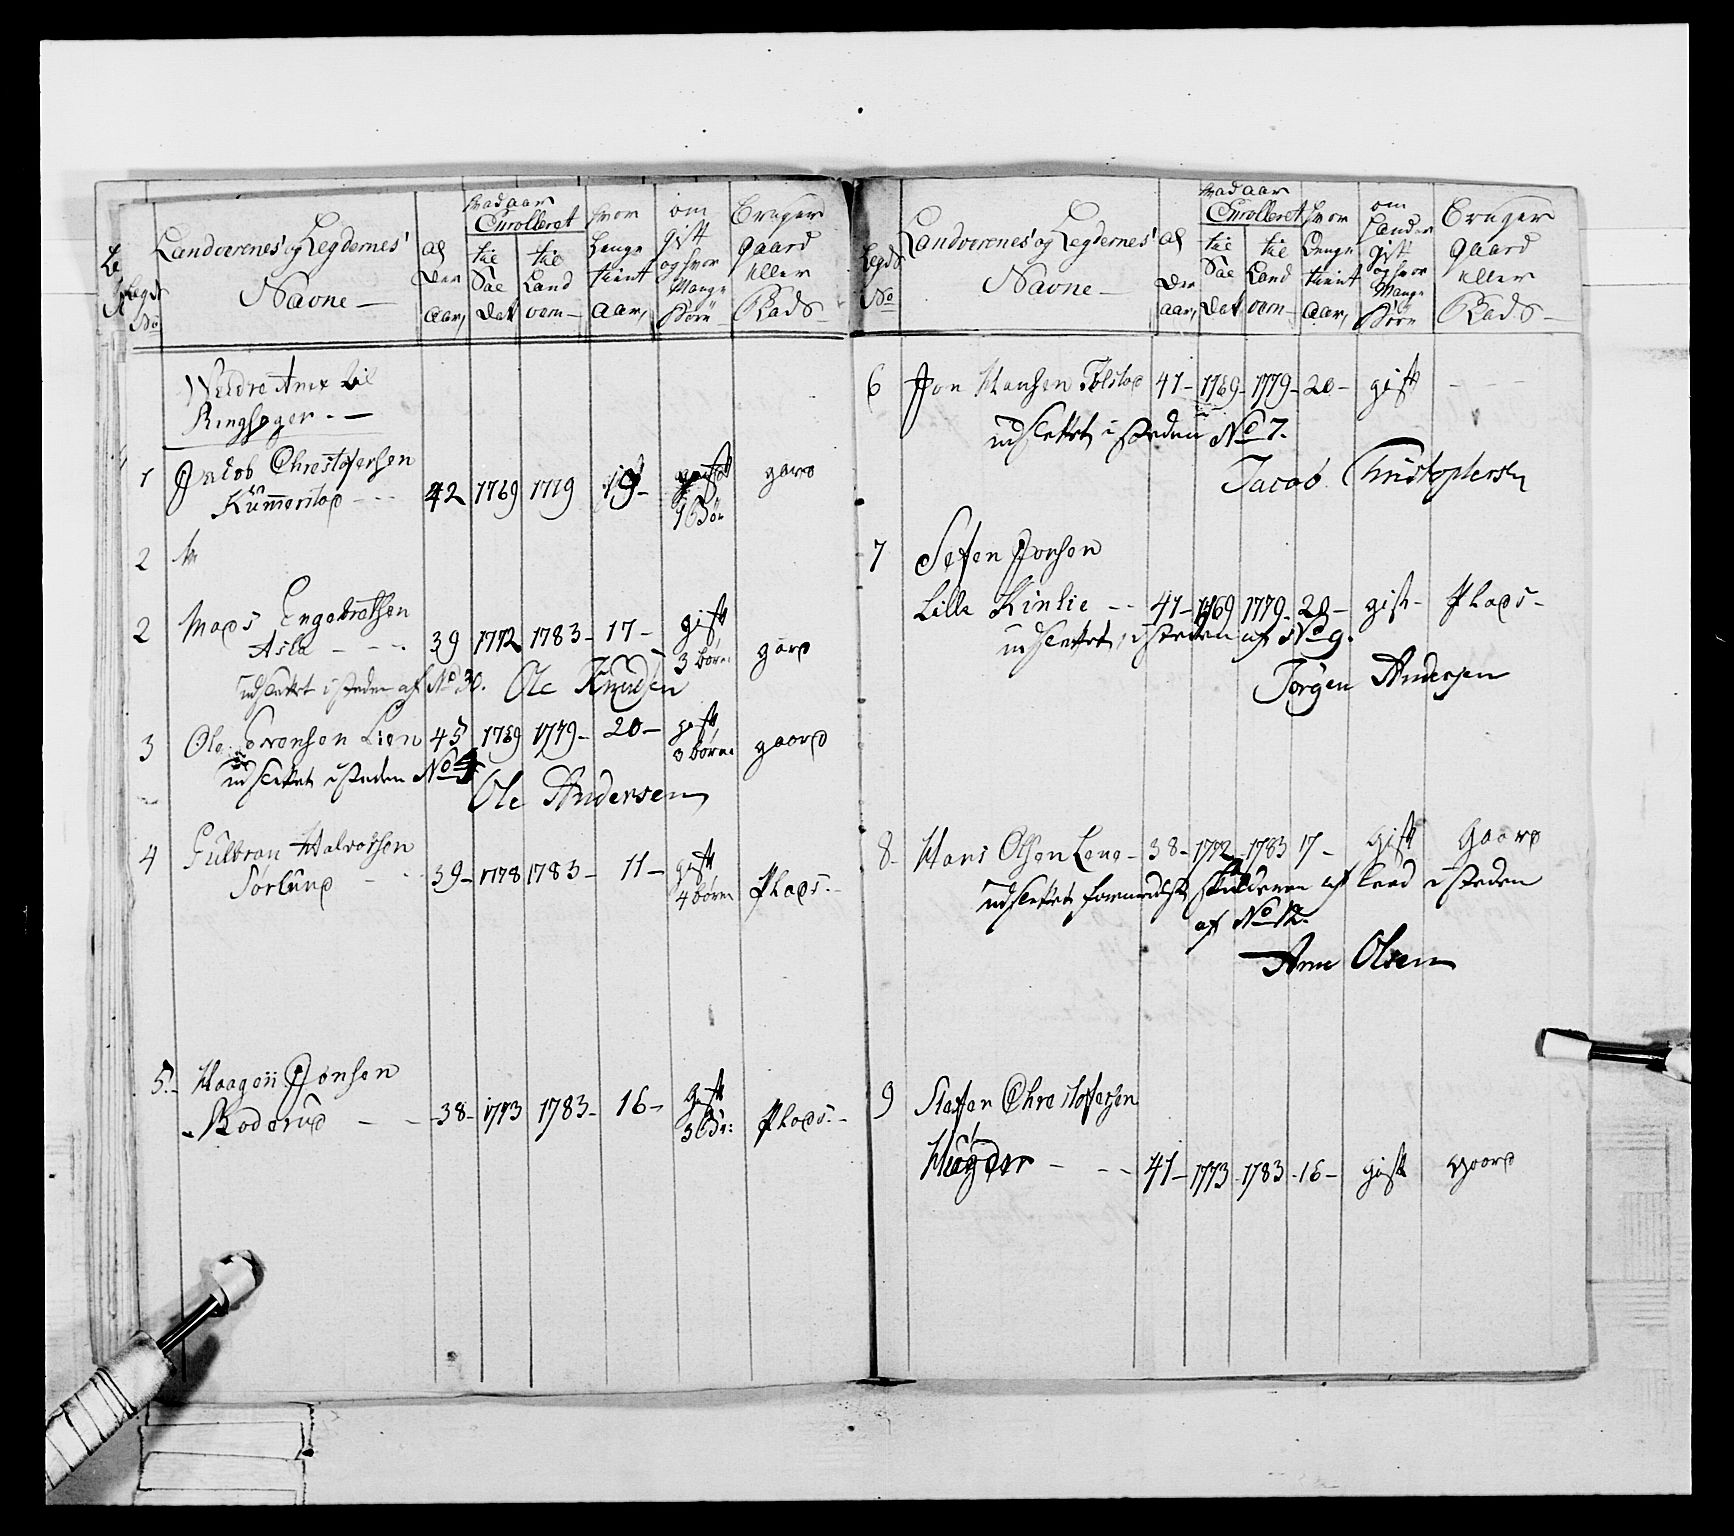 Legds
No
Landværenes' og Legdernes'
Navne —
al
der
aar,
hvad aar
Enrolleret
til
Sae
det
til
Land
værn —
hvor
Lenge
tient
aar,
om
gift
og hvor
Mange
Børn
Bruger
gaard
eller
Plads
Weldre Anex til
Ringsager. —
1 Jacob Christofersen
Kummerstad - - - 42 1769 1779 19 - gift gard
1 Bør
2
2 Mads Engebretsen
Asla - - - 39 1772 1783 - 17 - gift
3 børn gard
udslettet i steden af No 30. Ole Knudsen
3 Ole Sørensen Lien 45 1769 1779 - 20 - gift
3 børn gaard
udslettet i steden No 4
Ole Andersen
4 Gulbran Halvorsen
Sørlund - - 39 - 1778 1783 - 11 - gift
4 børn Plads. -
5. - Haagen Jonsen
Roderud - - 38 - 1773 1783 - 16 - gift
3 Bør: Plads. -
Legds
No
Landværenes' og Legdernes'
Navne —
al
der
aar,
hvad aar
Enrolleret
til
Sae
det
til
Land
værn —
hvor
Lenge
tient
aar,
om
Lander
gift
og hvor
Mange
Børn
Bruger
gaard
eller
Plads —
6 Jon Hansen Tolstad 41 - 1769 - 1779 - 20 - gift - - -
udslettet i steden No 7.
Jacob Christophersen
7 Sefen Jonsen
Lille Kinlie - - 41 - 1769 1779 - 20 - gift - Plads -
udslettet, i steden af No 9.
Jørgen Andersen
8 - Hans Olsen Lene - 38 - 1772 - 1783 17 - gift Gaard
udslettet formedelst af leed i steden
af No 12.
Arne Olsen
9 Stefen Christofersen
Høgder - - - 41 - 1773 - 1783 - 16 - gift gaard